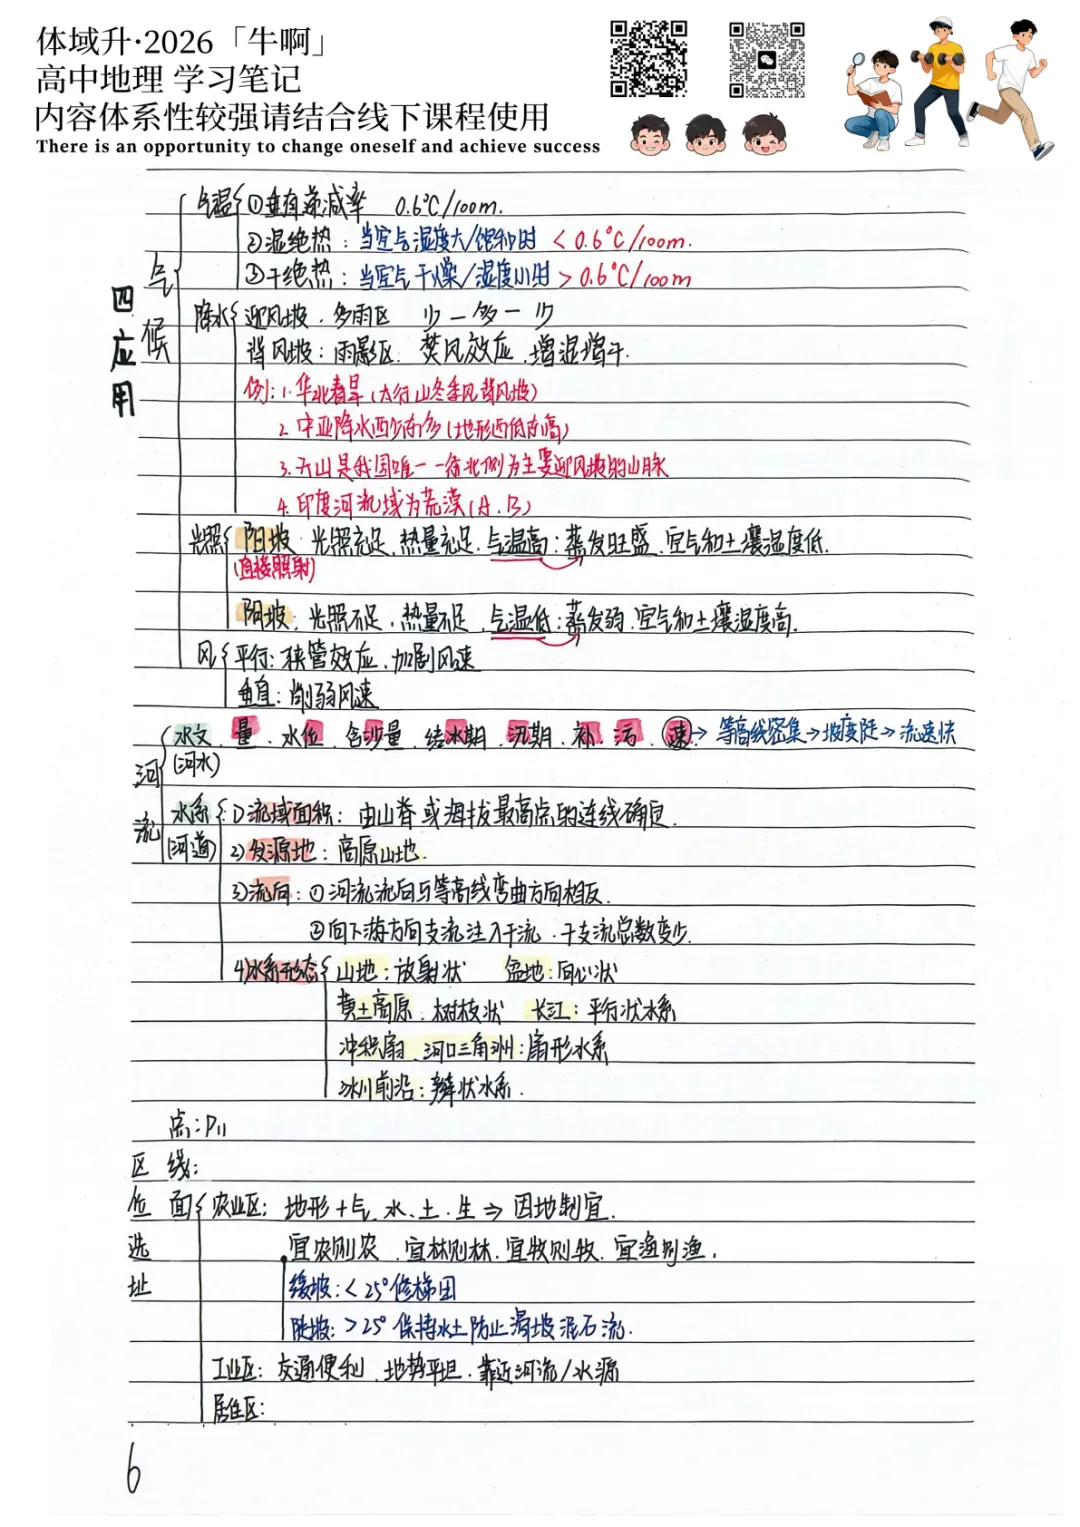 体域升·2026「牛啊」
高中地理 学习笔记
内容体系性较强请结合线下课程使用
There is an opportunity to change oneself and achieve success
四应用
气候
气温 ①垂直递减率 0.6℃/100m.
②湿绝热：当空气湿度大/饱和时 < 0.6℃/100m.
③干绝热：当空气干燥/湿度小时 > 0.6℃/100m
降水 迎风坡．多雨区 少－多－少
背风坡：雨影区．焚风效应．增温增干．
例：1.华北春旱(太行山冬季风背风坡)
2.中亚降水西少东多(地形西低东高)
3.天山是我国唯一一条北侧为主要迎风坡的山脉
4.印度河流域为荒漠(A.B)
光照 阳坡：光照充足．热量充足．气温高：蒸发旺盛．空气和土壤湿度低．
(直接照射)
阴坡：光照不足．热量不足．气温低：蒸发弱．空气和土壤湿度高．
风 平行：狭管效应．加剧风速
垂直：削弱风速
河流
水文．量．水位．含沙量．结冰期．汛期．补．污．速→等高线密集→坡度陡→流速快
(河水)
水系 1)流域面积：由山脊或海拔最高点的连线确定．
(河道) 2)发源地：高原山地．
3)流向：①河流流向与等高线弯曲方向相反．
②向下游方向支流注入干流．干支流总数变少．
4)水系形态 山地：放射状 盆地：向心状
黄土高原．树枝状 长江：平行状水系
冲积扇．河口三角洲：扇形水系
冰川前沿：辫状水系．
点：P11
区 线：
位 面 农业区：地形+气．水．土．生⇒因地制宜．
选 宜农则农．宜林则林．宜牧则牧．宜渔则渔．
址 缓坡：< 25°修梯田
陡坡：> 25°保持水土防止滑坡泥石流．
工业区：交通便利．地势平坦．靠近河流/水源
居住区：
6